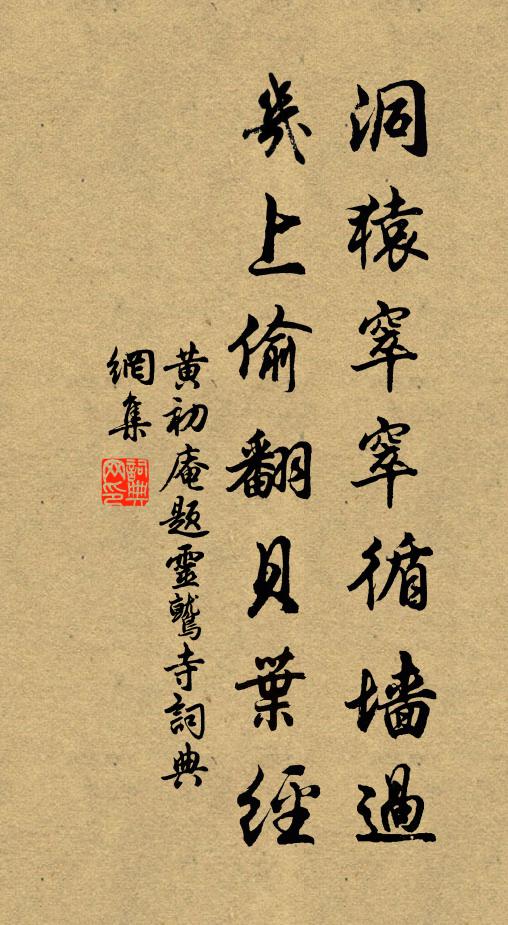 洞猿窣窣循墙過
幾上偷翻貝葉經
黄初庵題靈鷲寺詞典
網集
詞典網印